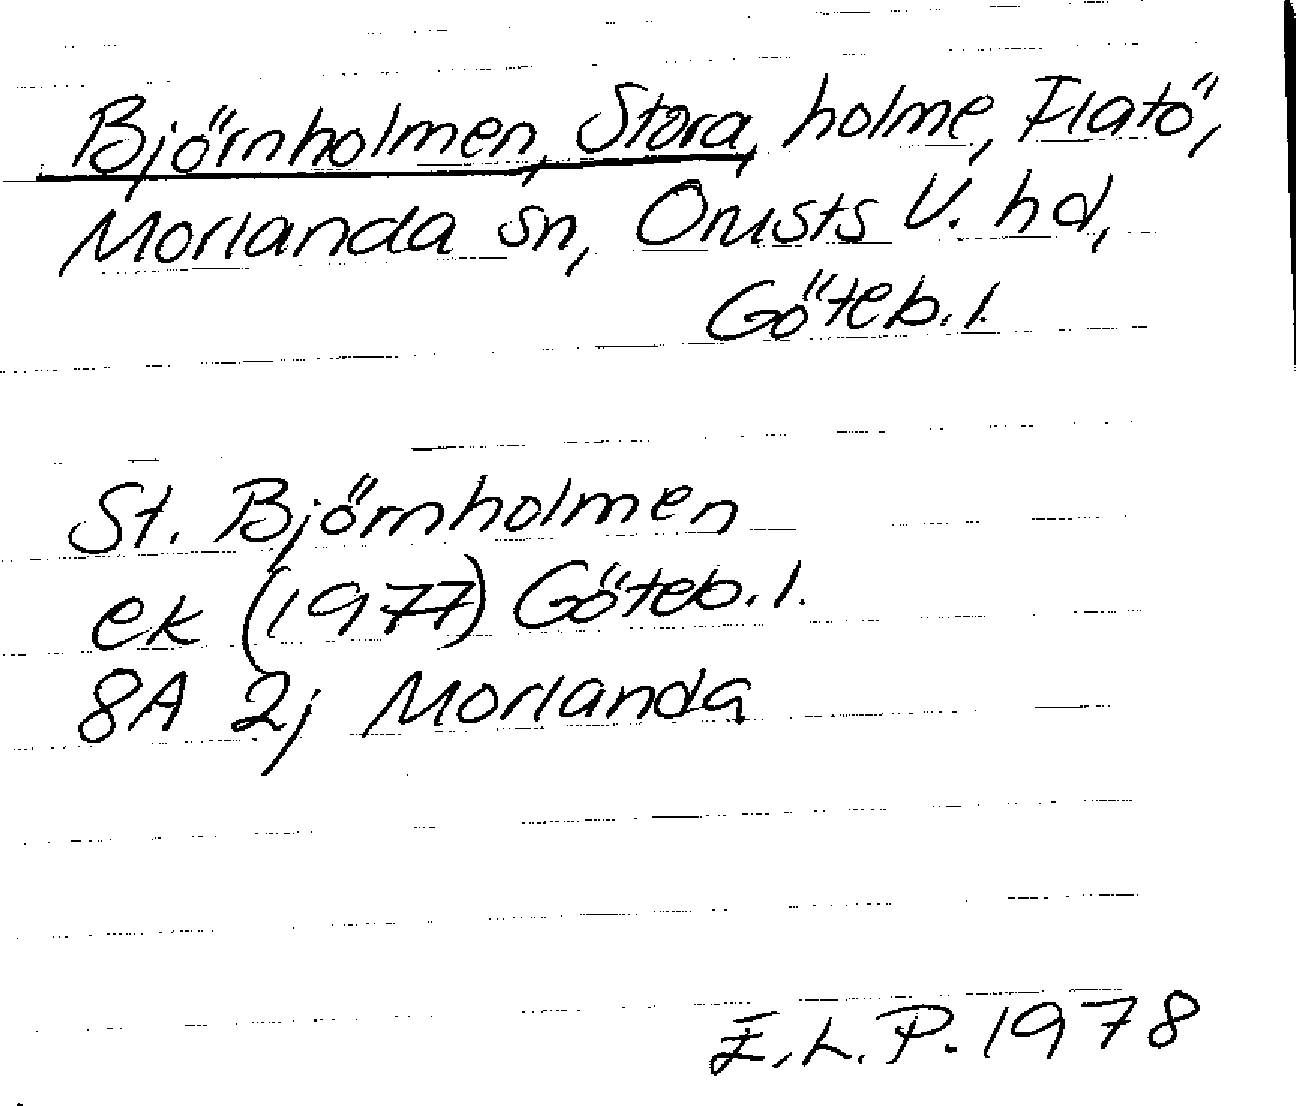 Björnholmen, Stora, holme, Flatö,
Morlanda sn, Orusts V. hd,
Göteb. l.
St. Björnholmen
ek (1977) Göteb. l.
8A 2j Morlanda
E. L. P. 1978